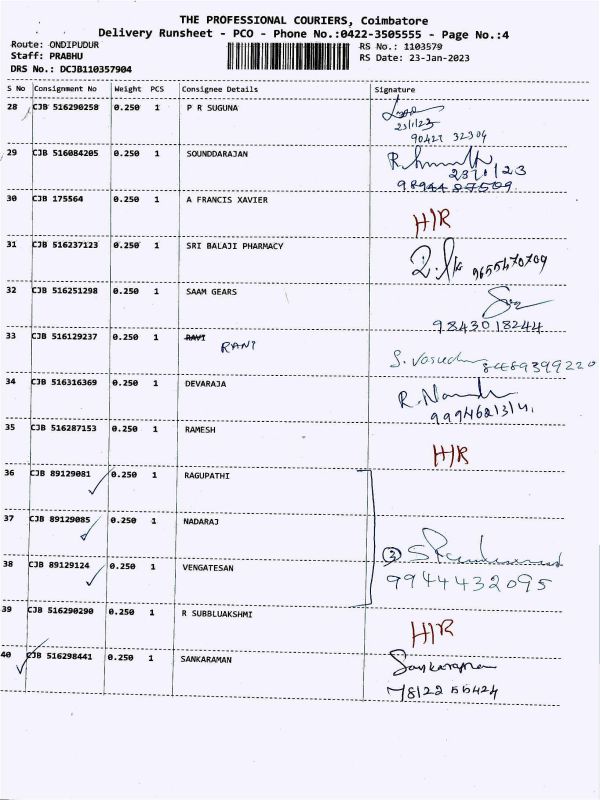 THE PROFESSIONAL COURIERS, Coimbatore
Delivery Runsheet - PCO - Phone No.:0422-3505555 - Page No.:4
Route: ONDIPUDUR
RS No.: 1103579
Staff: PRABHU
RS Date: 23-Jan-2023
DRS No.: DCJB110357904
S No Consignment No Weight PCS Consignee Details Signature
28 CJB 516290258 0.250 1 P R SUGUNA
23/1/23
90427 32304
29 CJB 516084205 0.250 1 SOUNDDARAJAN
23/1/23
9894487509
30 CJB 175564 0.250 1 A FRANCIS XAVIER H/R
31 CJB 516237123 0.250 1 SRI BALAJI PHARMACY 9655470709
32 CJB 516251298 0.250 1 SAAM GEARS
9843018244
33 CJB 516129237 0.250 1 RAVI RANI
34 CJB 516316369 0.250 1 DEVARAJA
35 CJB 516287153 0.250 1 RAMESH H/R
36 CJB 89129081 0.250 1 RAGUPATHI
37 CJB 89129085 0.250 1 NADARAJ
38 CJB 89129124 0.250 1 VENGATESAN
3
9944432095
39 CJB 516290290 0.250 1 R SUBBLUAKSHMI H/R
40 CJB 516298441 0.250 1 SANKARAMAN Sankaraman
78122 55424